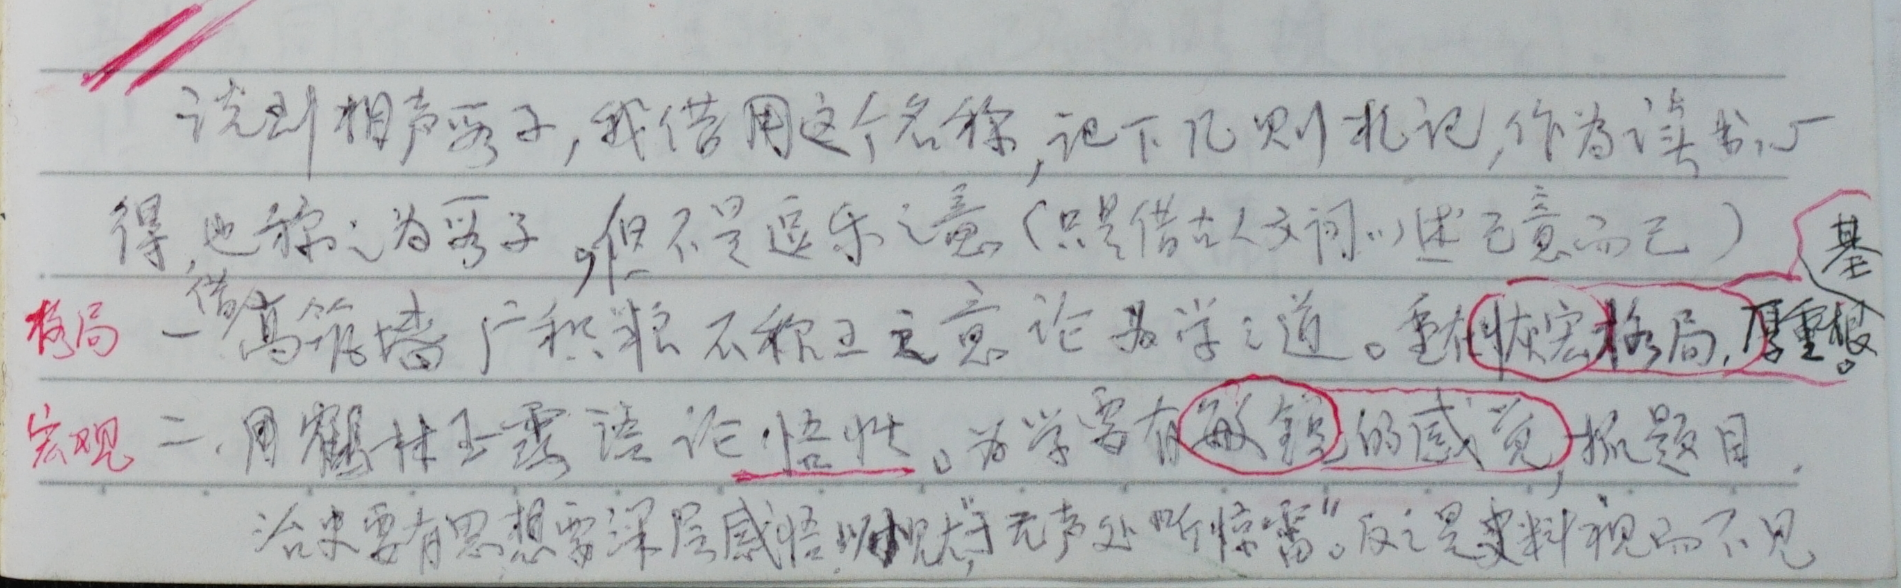 说到相声段子,我借用这个名称,记下几则札记,作为读书心
得,也称之为段子。但不是逗乐之意(只是借古人文词以述己意而已)
格局 一 借高筑墙广积粮不称王之意论为学之道。重在恢宏格局,厚重根基。
宏观 二.用鹤林玉露语论悟性。为学要有敏锐的感觉,抓题目.
治史要有思想要深层感悟 "于无声处听惊雷"。反之是史料视而不见